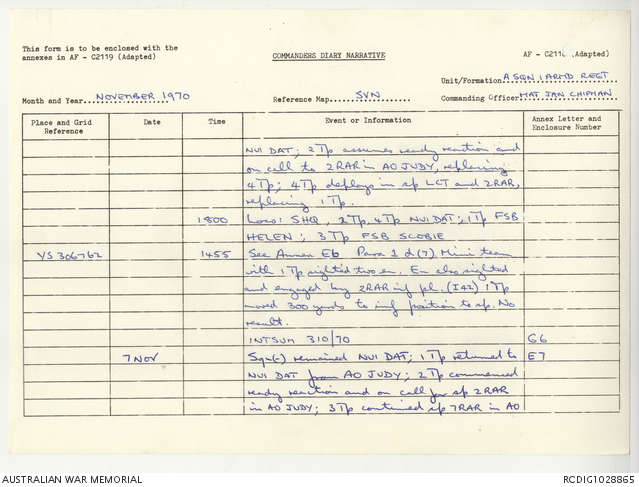 This form is to be enclosed with the
annexen in AF - C2119 (Adapted)
COMMANDERS DIARY NARRATIVE
AF - C2118 (Adapted)
Unit/Formation A SQN 1 ARMD REGT
Month and Year NOVEMBER 1970
Reference Map SVN
Commanding Officer MAJ JAN CHIPMAN
Place and Grid Reference
Date
Time
Event or Information
Annex Letter and Enclosure Number
NUI DAT; 2Tp assumes ready reaction and
on call to 2RAR in AO JUDY, replacing
4Tp; 4Tp deploys in sp LCT and 2RAR,
replacing 1Tp.
1800 Locs: SHQ, 2Tp, 4Tp NUI DAT; 1Tp FSB
HELEN; 3Tp FSB SCOBIE
YS 306762 1455 See Annex E6 Para 1 d(7) Mini team
with 1Tp sighted two en. En also sighted
and engaged by 2RAR inf pl. (I42) 1Tp
moved 300 yards to inf position to sp. No
result.
INTSUM 310/70 G6
7 NOV Sqn(-) remained NUI DAT; 1Tp returned to E7
NUI DAT from AO JUDY; 2Tp commenced
ready reaction and on call for sp 2RAR
in AO JUDY; 3Tp continued sp 7RAR in AO
AUSTRALIAN WAR MEMORIAL
RCDIG1028865